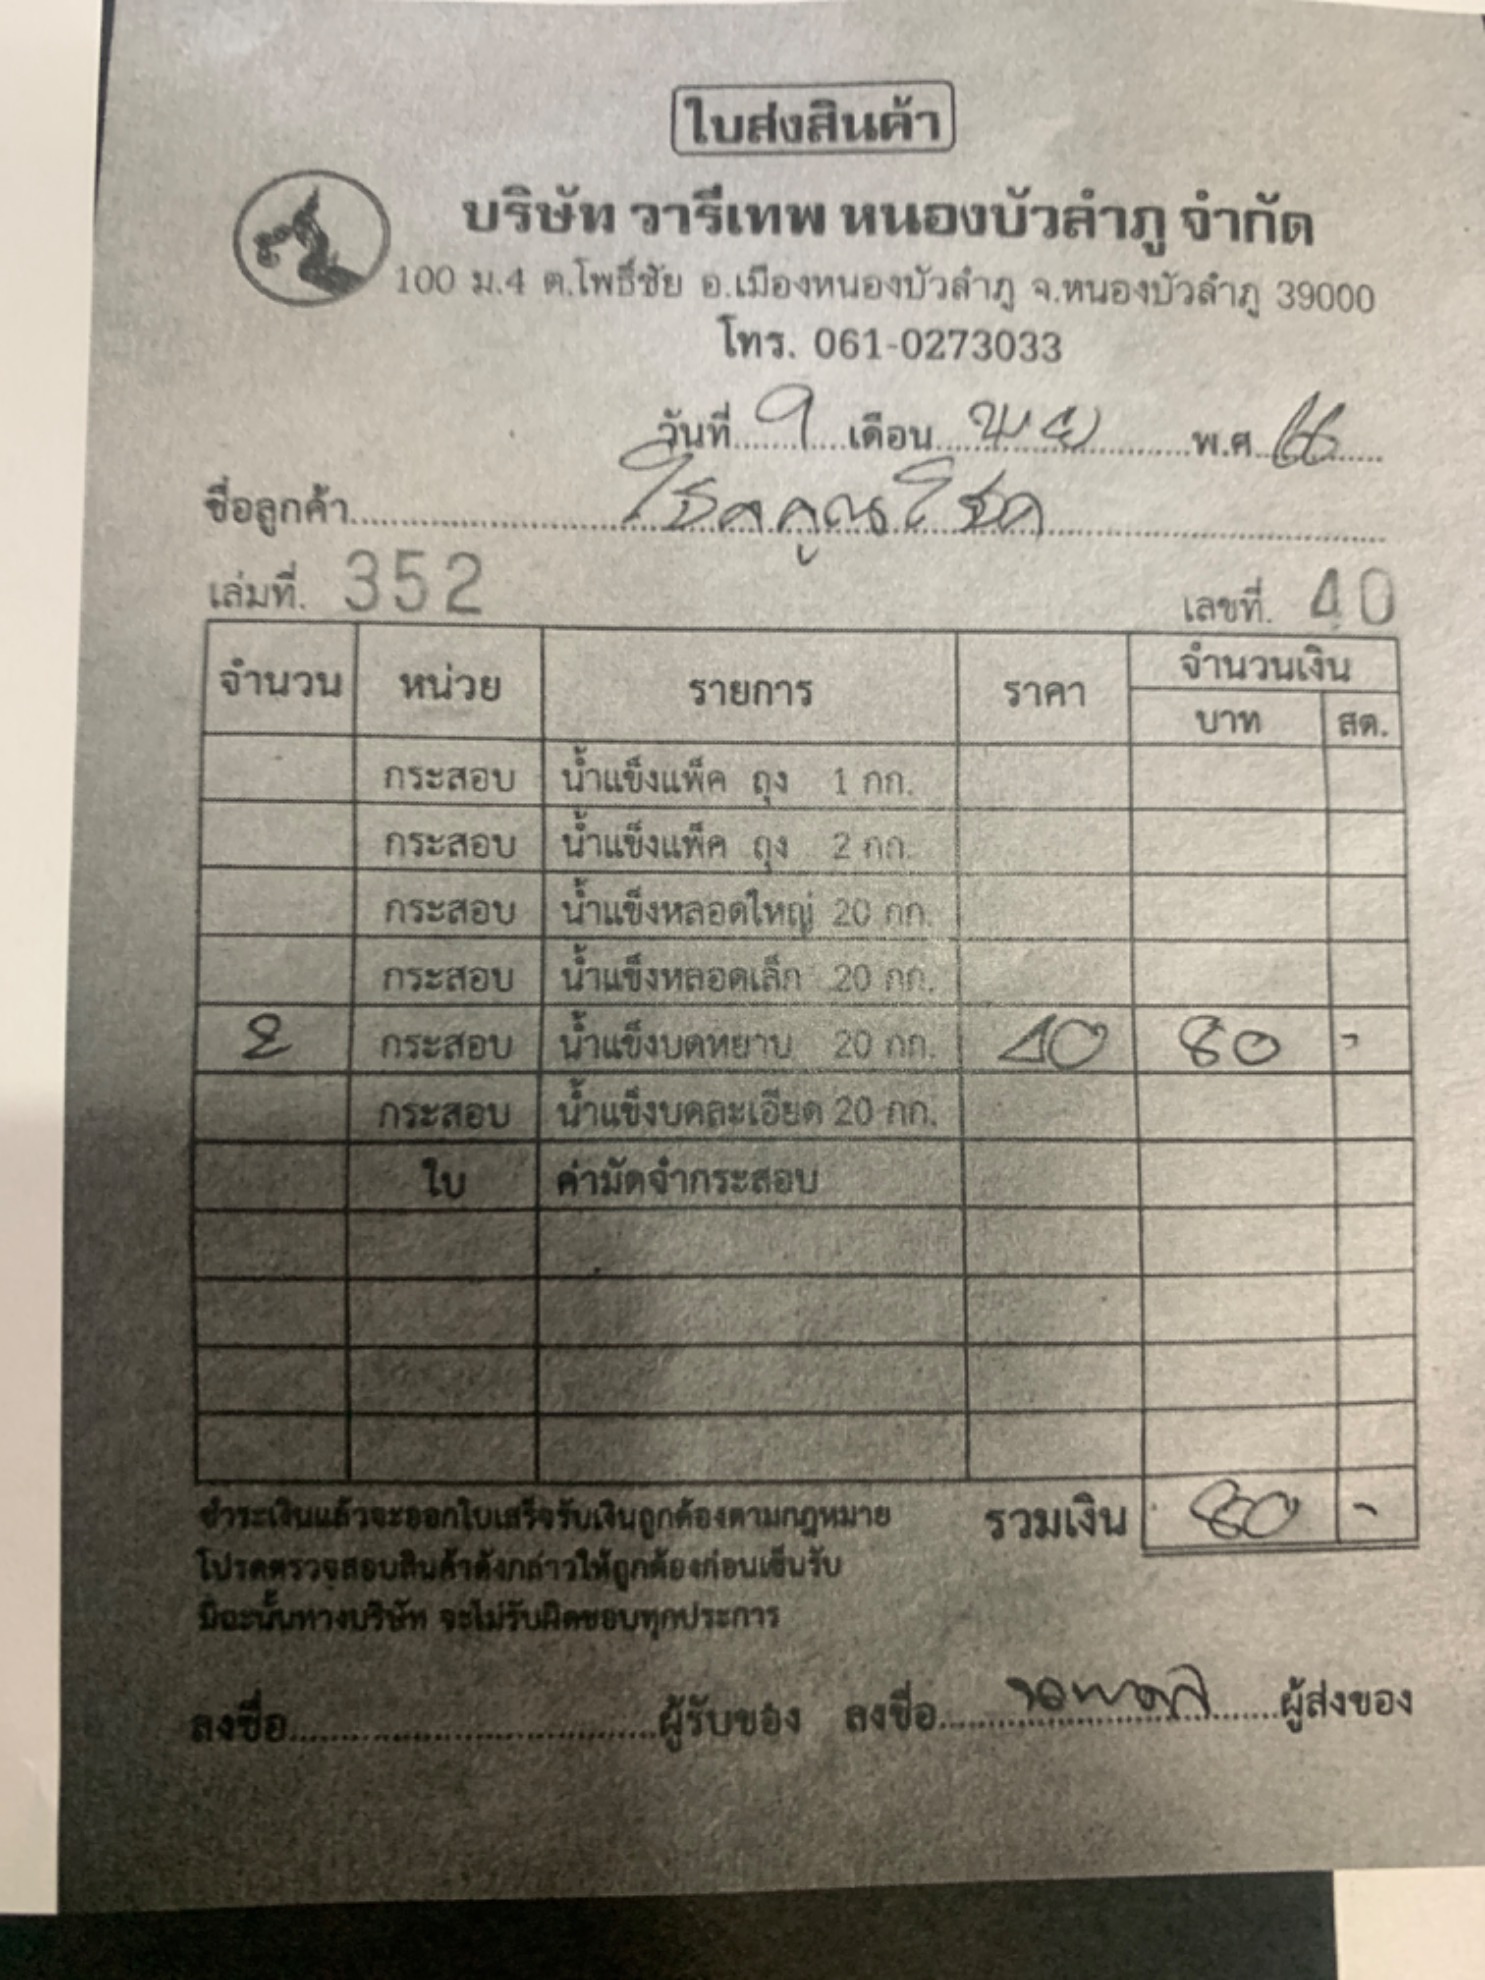 ใบส่งสินค้า
บริษัท วารีเทพ หนองบัวลำภู จำกัด
100 ม.4 ต.โพธิ์ชัย อ.เมืองหนองบัวลำภู จ.หนองบัวลำภู 39000
โทร. 061-0273033
วันที่ 9 เดือน พย พ.ศ 66
ชื่อลูกค้า โชคคูณโชค
เล่มที่. 352 เลขที่. 40
จำนวน หน่วย รายการ ราคา จำนวนเงิน
บาท สต.
กระสอบ น้ำแข็งแพ็ค ถุง 1 กก.
กระสอบ น้ำแข็งแพ็ค ถุง 2 กก.
กระสอบ น้ำแข็งหลอดใหญ่ 20 กก.
กระสอบ น้ำแข็งหลอดเล็ก 20 กก.
2 กระสอบ น้ำแข็งบดหยาบ 20 กก. 40 80 -
กระสอบ น้ำแข็งบดละเอียด 20 กก.
ใบ ค่ามัดจำกระสอบ
ชำระเงินแล้วจะออกใบเสร็จรับเงินถูกต้องตามกฎหมาย รวมเงิน 80 -
โปรดตรวจสอบสินค้าดังกล่าวให้ถูกต้องก่อนเซ็นรับ
มิฉะนั้นทางบริษัท จะไม่รับผิดชอบทุกประการ
ลงชื่อ ผู้รับของ ลงชื่อ ผู้ส่งของ